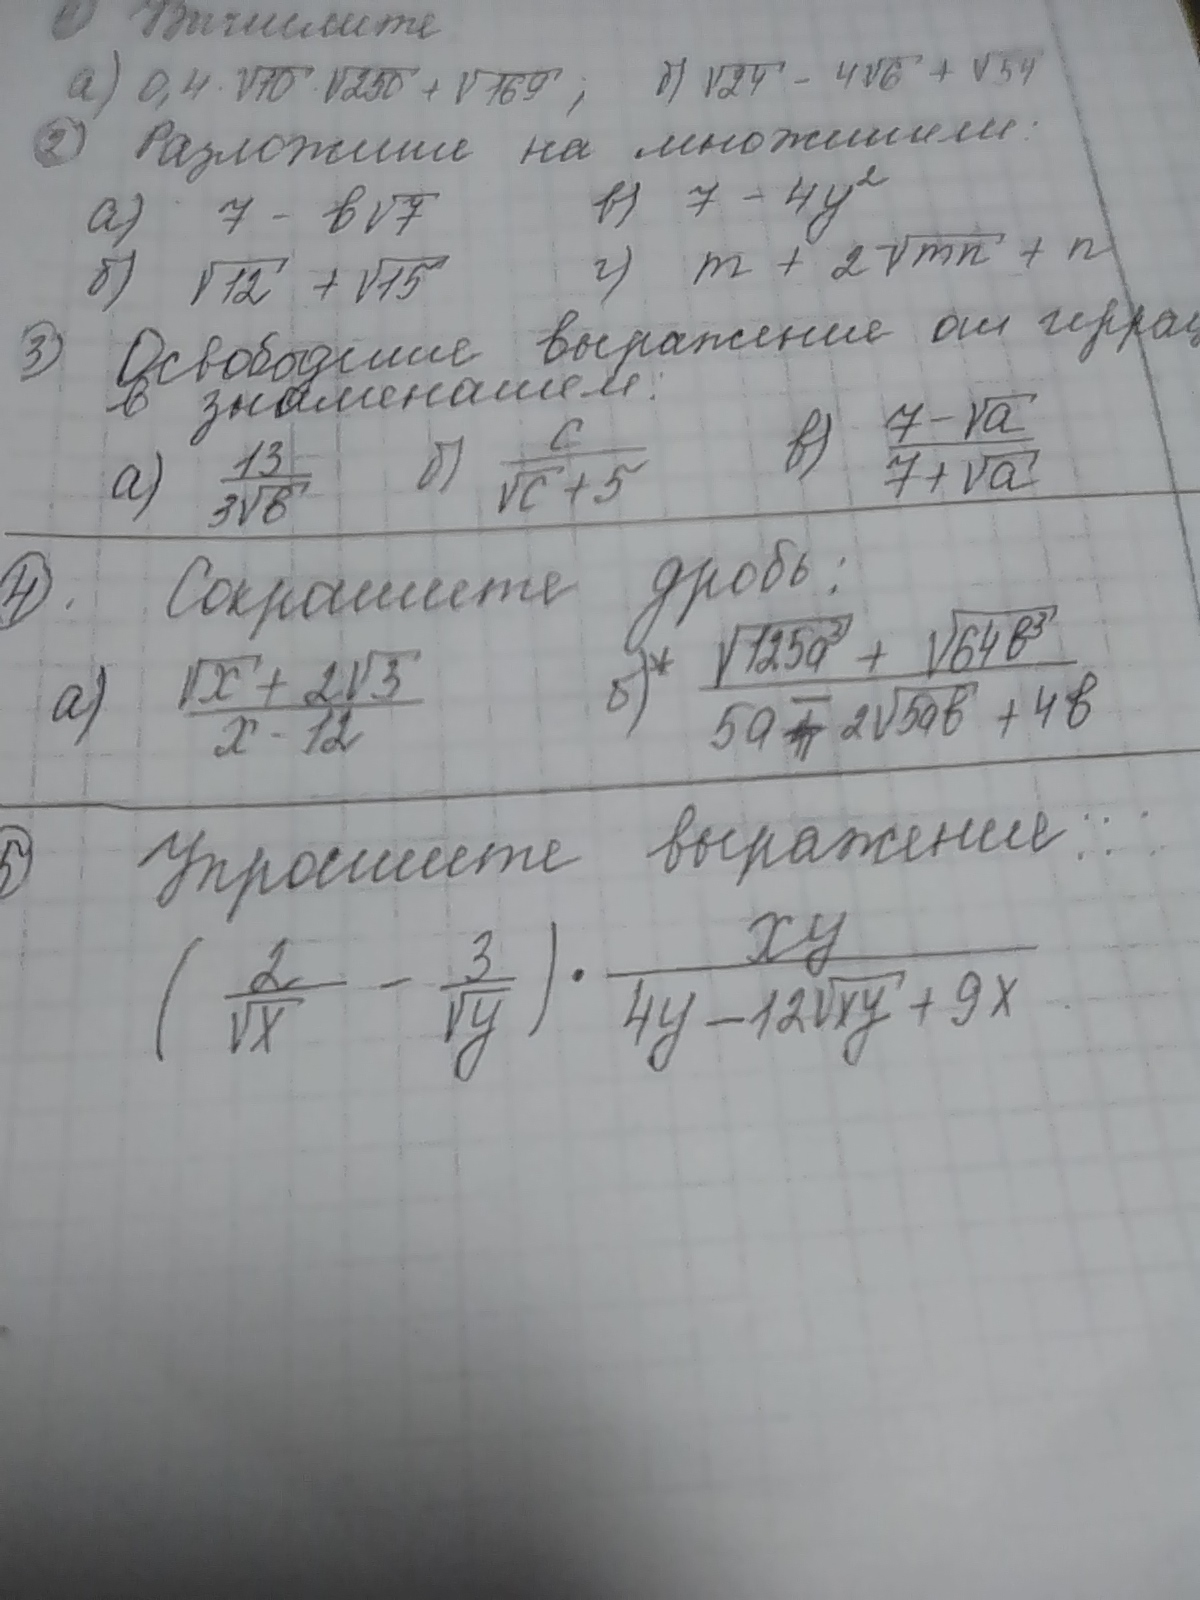 1) Вычислите
а) 0,4·√10·√250 + √169; б) √24 - 4√6 + √54
2) Разложите на множители:
а) 7 - в√7 в) 7 - 4y²
б) √12 + √15 г) m + 2√mn + n
3) Освободите выражение от иррац
в знаменателе:
а) 13/(3√в) б) c/(√c + 5) в) (7 - √a)/(7 + √a)
4). Сократите дробь:
а) (√x + 2√3)/(x - 12) б)* (√125a³ + √64в³)/(5a - 2√5aв + 4в)
5) Упростите выражение:
(2/√x - 3/√y) · xy/(4y - 12√xy + 9x)